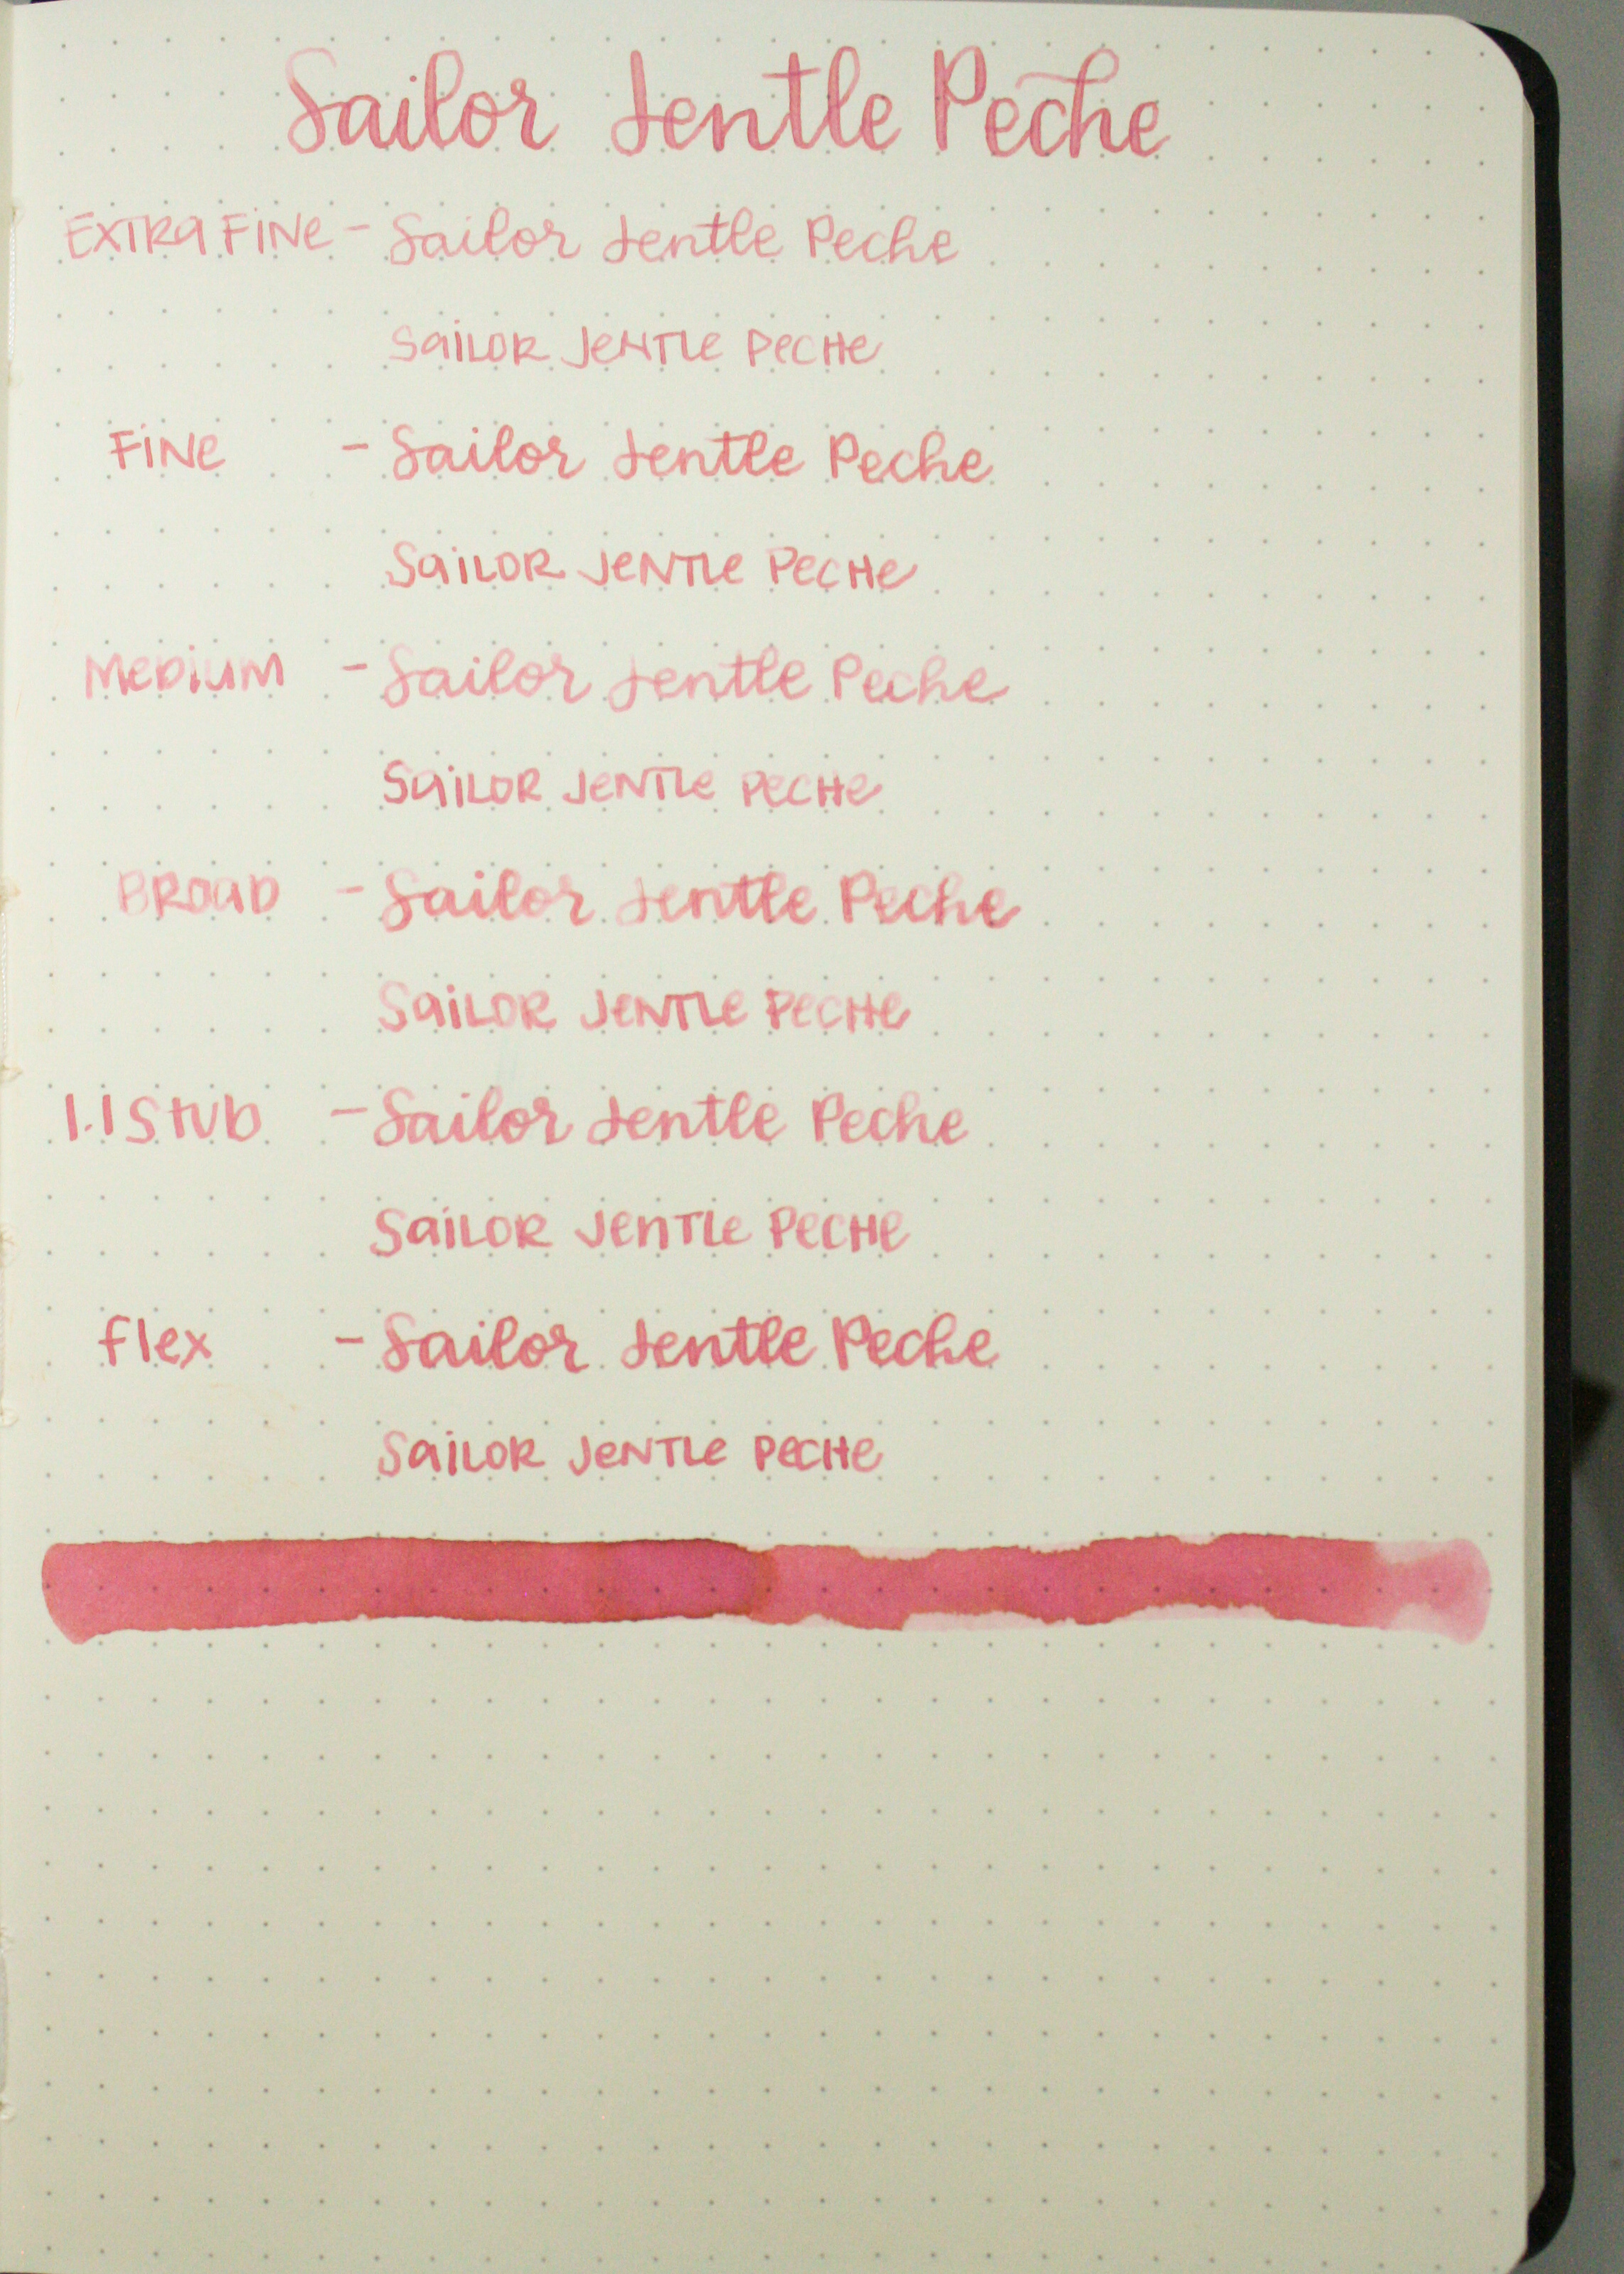 Sailor Jentle Pêche
EXTRA FiNe - Sailor Jentle Peche
SaiLOR JeNTLe PecHe
FiNe - Sailor Jentle Peche
SaiLOR JeNTLe PecHe
MeDiuM - Sailor Jentle Peche
SaiLOR JeNTLe PecHe
BROaD - Sailor Jentle Peche
SaiLOR JeNTLe PecHe
1.1 Stub - Sailor Jentle Peche
SaiLOR JenTLe PecHe
flex - Sailor Jentle Peche
SaiLOR JeNTLe PecHe